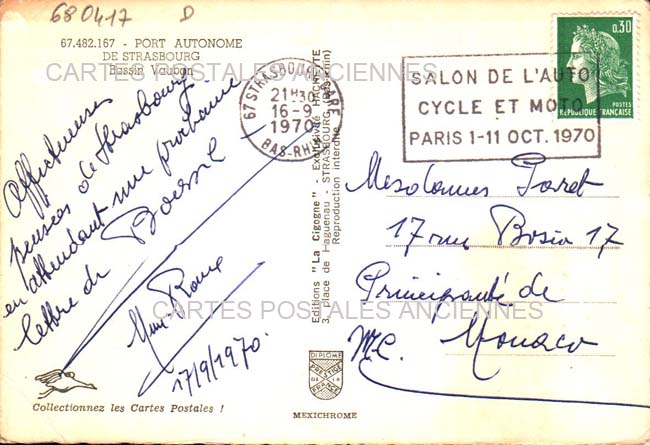 680417 D
67.482.167 - PORT AUTONOME
DE STRASBOURG
Bassin Vauban
CARTES POSTALES ANCIENNES
Affectueuses
pensées de Strasbourg
en attendant une prochaine
lettre de
17/9/1970.
Collectionnez les Cartes Postales !
67 STRASBOURG GARE
21H30
16-9
1970
BAS-RHIN
SALON DE L'AUTO
CYCLE ET MOTO
PARIS 1-11 OCT. 1970
0,30
POSTES
REPUBLIQUE FRANÇAISE
Editions "La Cigogne" - Exclusivité HACHETTE
3, place de Haguenau - STRASBOURG (Bas-Rhin)
Reproduction Interdite
Mesdames
17 rue Bosio 17
Principauté de
Monaco
MC.
CARTES POSTALES ANCIENNES
DIPLOME
PRESTIGE
DE LA
FRANCE
MEXICHROME